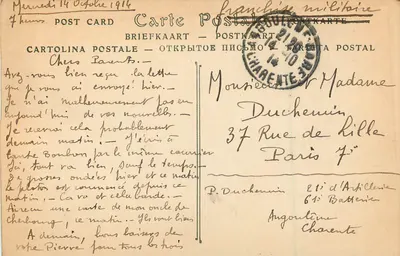 Mercredi 14 Octobre 1914
7 heures
Franchise militaire
POST CARD Carte Postale POSTKARTE
BRIEFKAART - POSTKARTE
CARTOLINA POSTALE - ОТКРЫТОЕ ПИСЬМО - TARJETA POSTAL
ANGOULEME-GARE
21
14-10
14
CHARENTE
Chers Parents.-
Avez-vous bien reçu la lettre
que je vous ai envoyé hier.-
Je n'ai malheureusement pas eu
aujourd'hui de vos nouvelles.-
Je recevrai cela probablement
demain matin.- J'écris à
Tante Bonbon par le même courrier
Ici, tout va bien, sauf le temps.-
grosses ondées hier et ce matin
le peloton est commencé depuis ce
matin.- Ca va et cela barde.-
Ai reçu une carte de mon oncle de
Cherbourg, ce matin.- Ils vont bien
A demain, bons baisers de
votre Pierre pour tous les trois
Monsieur et Madame
Duchemin
37 Rue de Lille
Paris 7e
P. Duchemin 21e d'Artillerie
61e Batterie
Angoulême
Charente